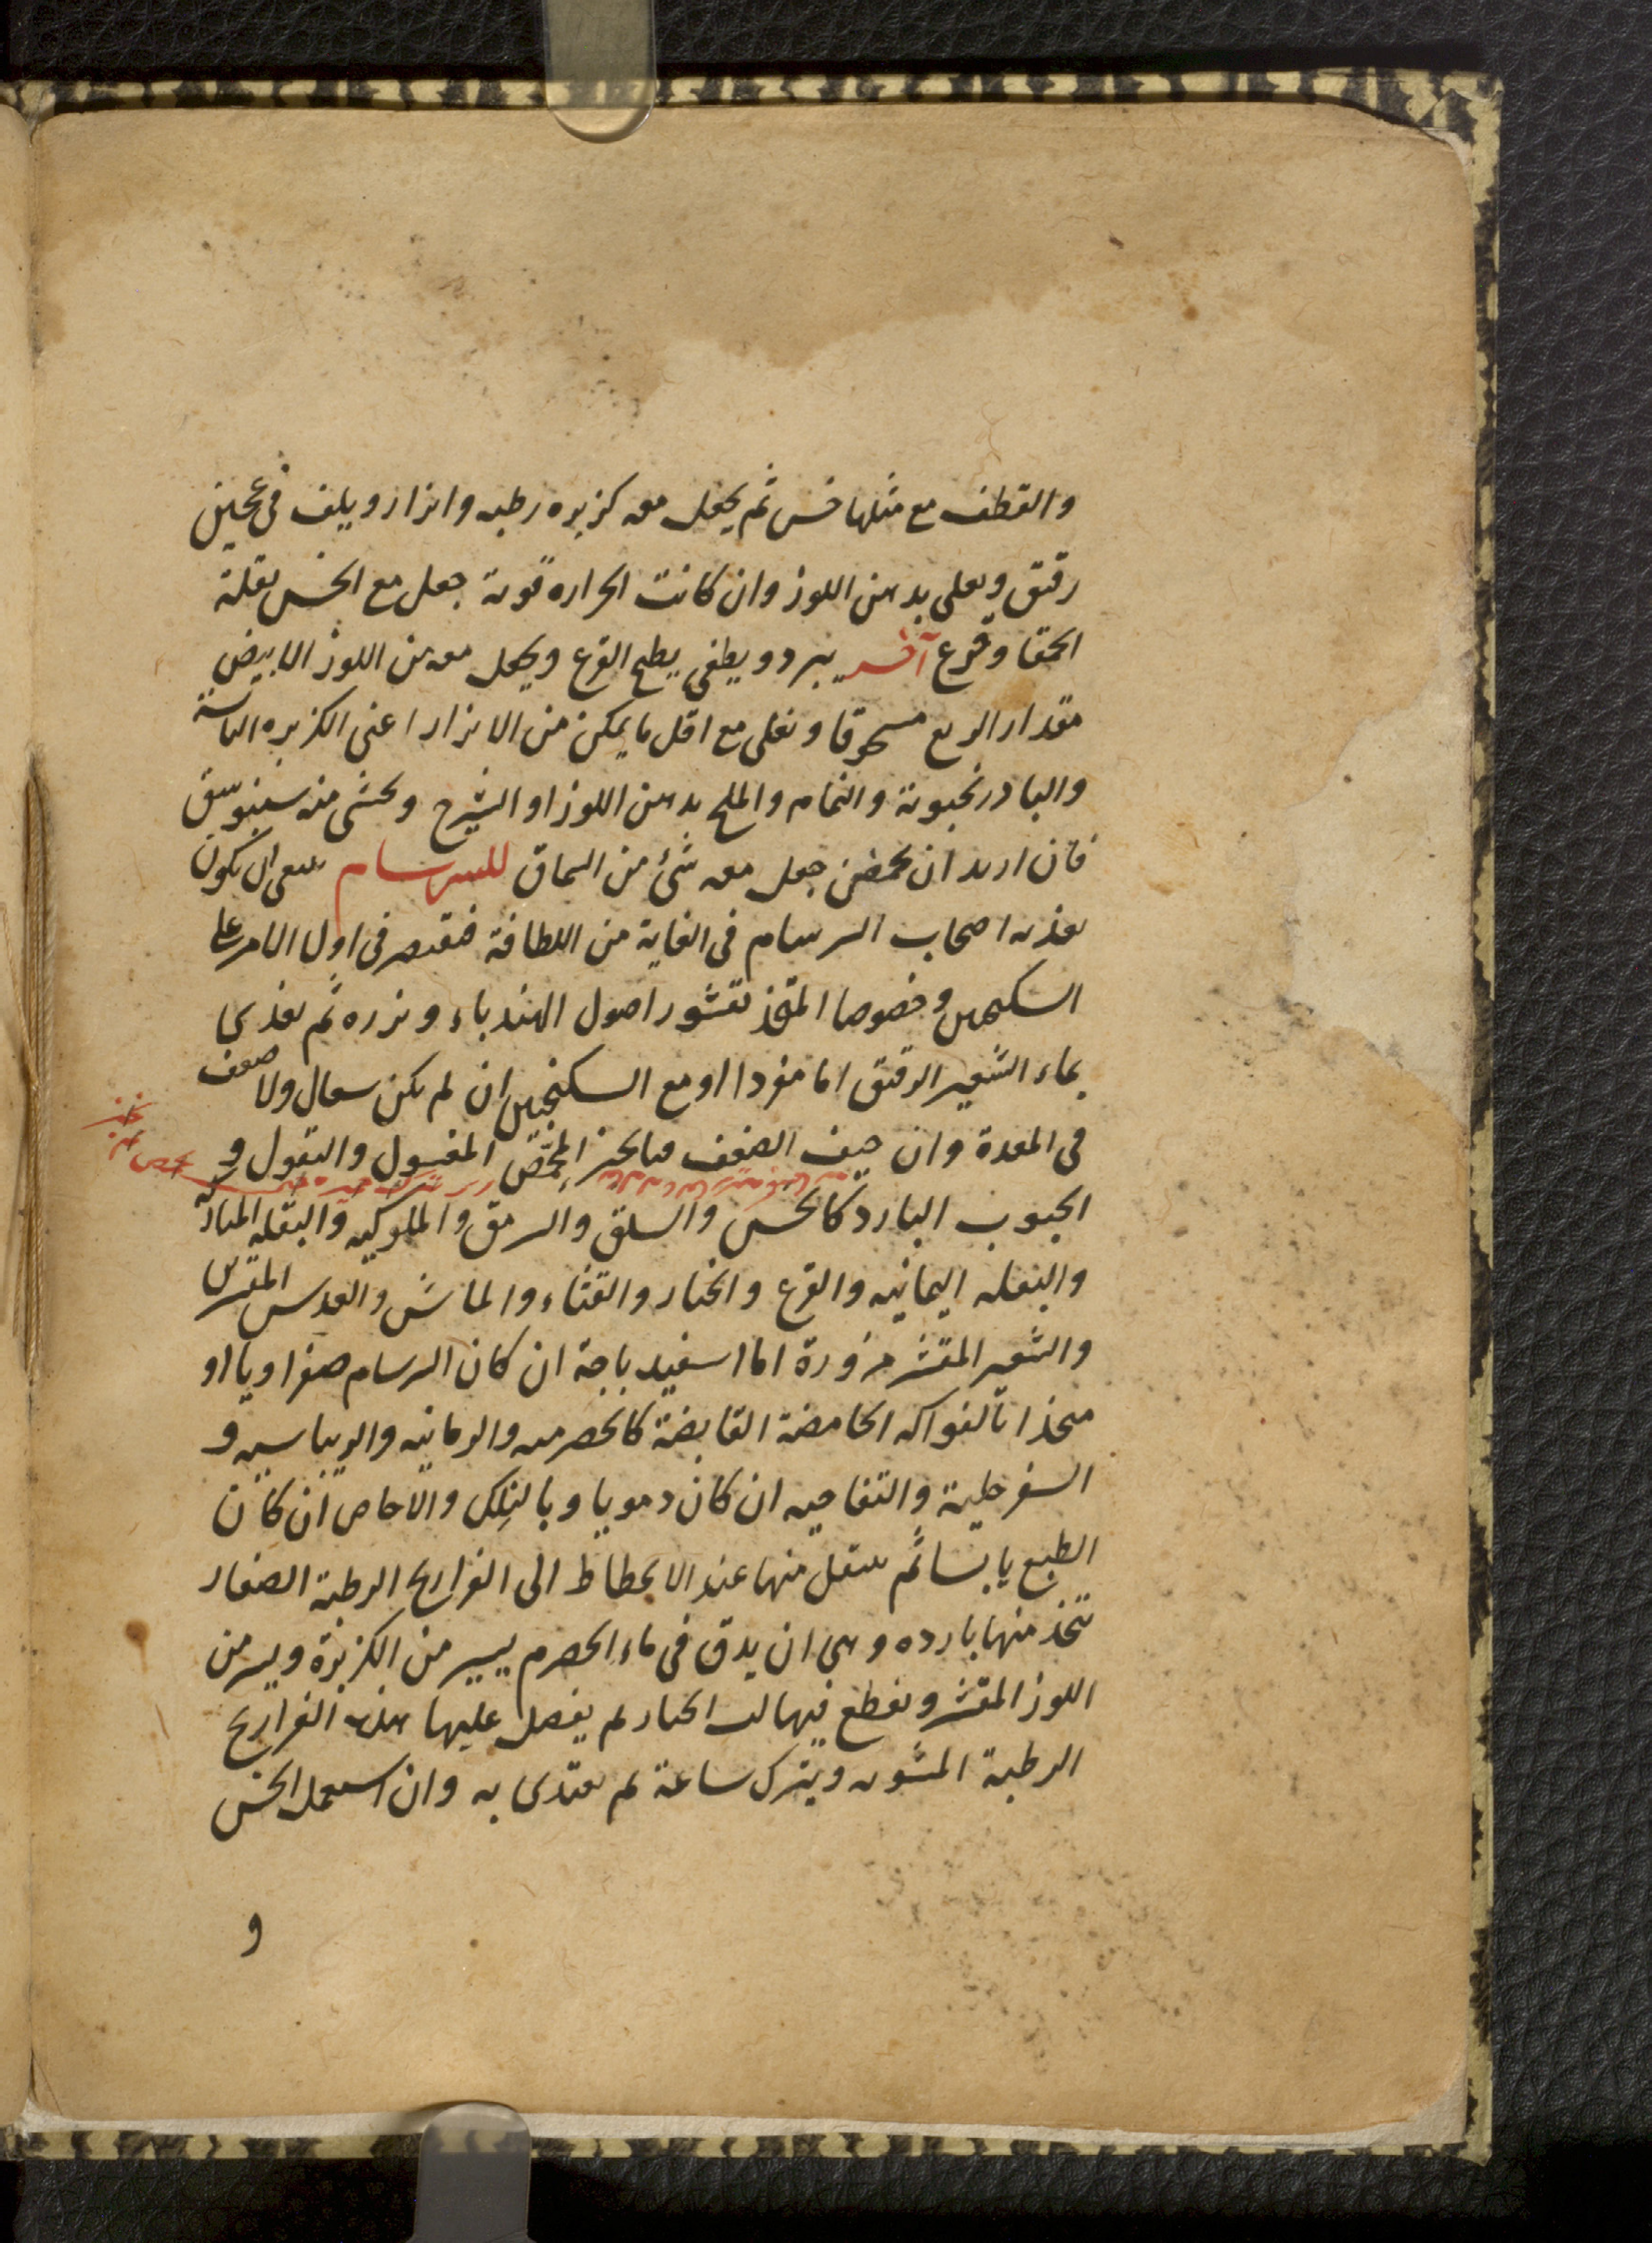 والقطف مع مثلها خس ثم يجعل معه كزبره رطبه وابزار ويلف فى عجين
رقيق ويغلى بدهن اللوز وان كانت الحراره قوية جعل مع الخس بقلة
الحمقا وقرع آخر يبرد ويطفى يطبخ القرع ويجعل معه من اللوز الابيض
مقدار الربع مسحوقا ويغلى مع اقل ما يمكن من الابزار اعنى الكزبره اليابسة
والبادرنجبوية والنمام والملح بدهن اللوز او الشيرج ويحشى منه سنبوسق
فان اريد ان يحمض جعل معه شئ من السماق للسرسام ينبغى ان يكون
تغذيه اصحاب السرسام فى الغاية من اللطافة فيقتصر فى اول الامر على
السكنجبين وخصوصا المتخذ بقشور اصول الهندباء وبزره ثم يغذى
بماء الشعير الرقيق اما مفردا او مع السكنجبين ان لم يكن سعال ولا ضعف
فى المعدة وان خيف الضعف فبالخبز المغسول والبقول و
الحبوب البارد كالخس والسلق والسرمق والملوكيه والبقله المباركة
والبقله اليمانيه والقرع والخيار والقثاء والماش والعدس المقشر
والشعير المقشر مزورة اما اسفيدباجة ان كان السرسام صفراويا او
متخذا بالفواكه الحامضة القابضة كالحصرميه والرمانيه والريباسيه و
السفرجلية والتفاحيه ان كان دمويا وبالنلك والاجاص ان كان
الطبع يابسا ثم ينتقل منها عند الانحطاط الى الفراريج الرطبة الصغار
تتخذ منها بارده وهى ان يدق فى ماء الحصرم يسير من الكزبرة ويسير من
اللوز المقشر ويقطع فيها لب الخيار ثم يفصل عليها هذه الفراريج
الرطبة المشويه ويترك ساعة ثم يغتذى به وان استعمل الخس
و